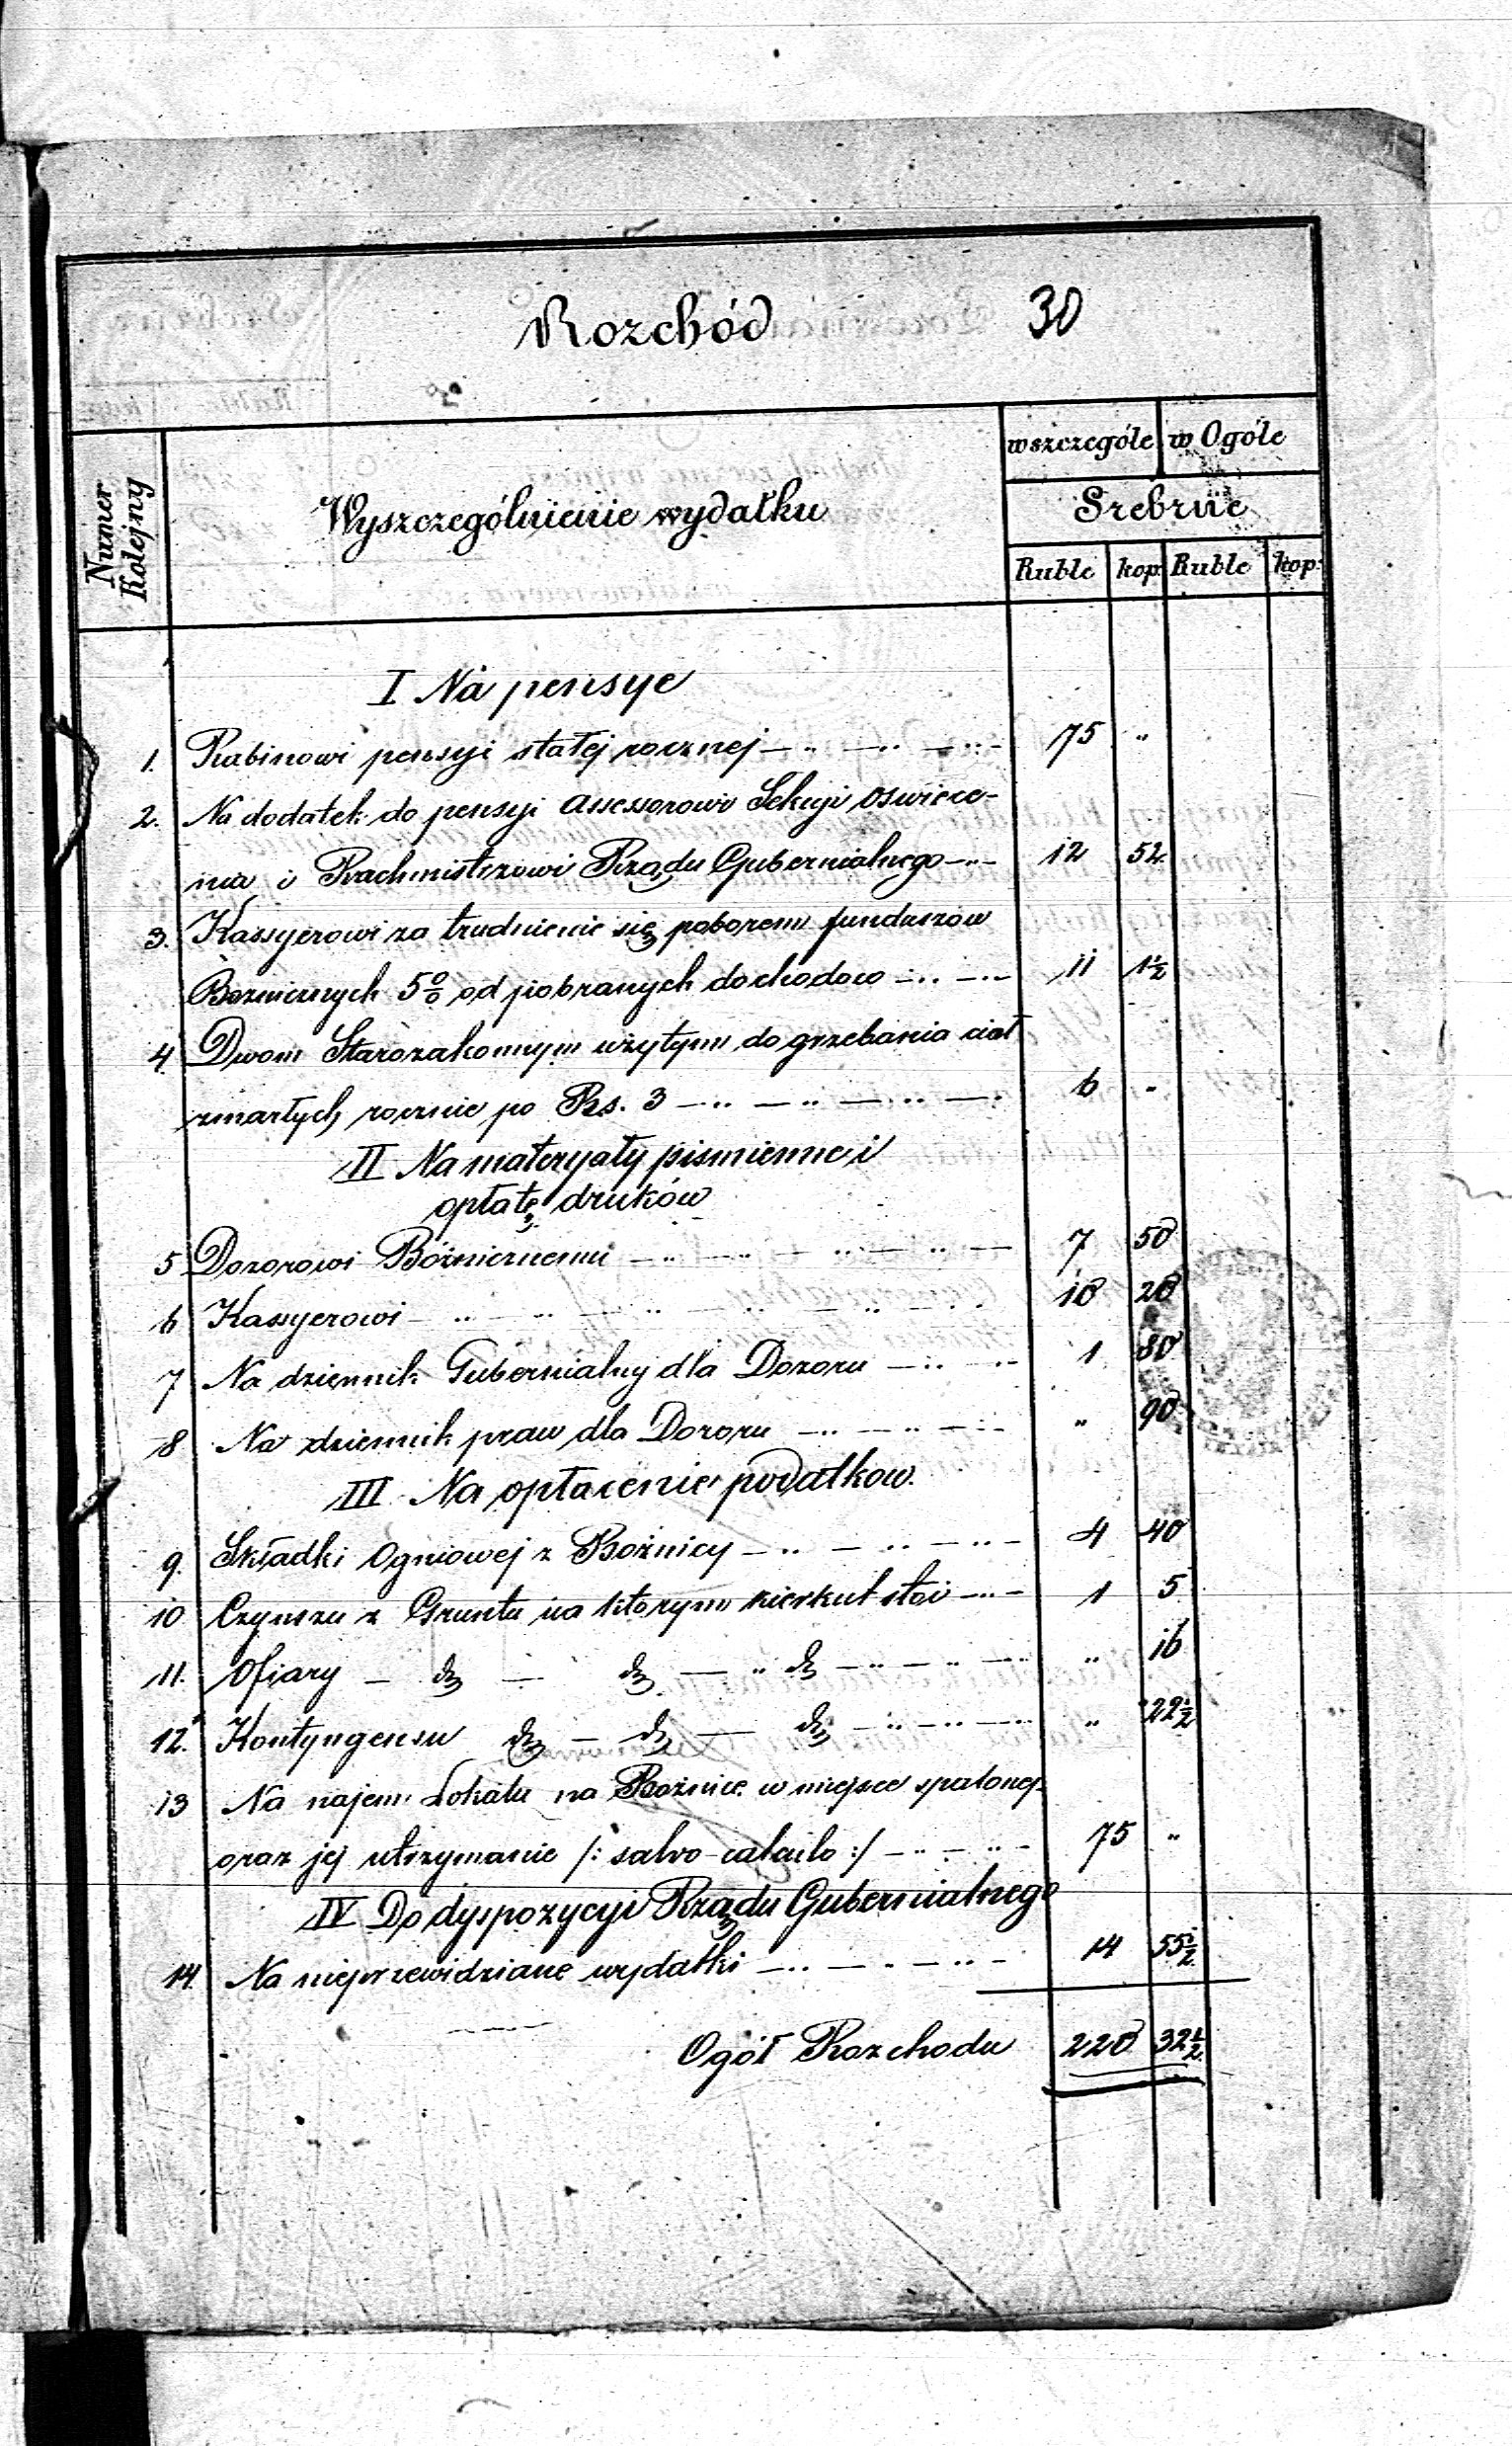 Rozchód 30
Numer Kolejny
Wyszczególnienie wydatku
w szczególe w Ogóle
Srebrne
Ruble kop: Ruble kop:
I Na pensye
1. Rabinowi pensyi stałej rocznej 75 "
2. Na dodatek do pensyi Assessorowi Sekcyi Oswiece-
nia i Rachmistrzowi Rządu Gubernialnego 12 52
3. Kassyerowi za trudnienie się poborem funduszow
Boznicznych 5 0/0 od pobranych dochodow 11 1 1/2
4 Dwom Starozakonnym użytym do grzebania ciał
zmarłych rocznie po Rs. 3 6 -
II Na materyały pismienne i
opłatę druków
5 Dozorowi Bóżnicznemu 7 50
6 Kassyerowi 10 20
7 Na dziennik Gubernialny dla Dozoru 1 80
8 Na dziennik praw dla Dozoru " 90
III Na opłacenie podatkow.
9. Składki Ogniowej z Bożnicy 4 40
10 Czynszu z Gruntu na ktorym kierkut stoi 1 5
11. Ofiary — do — do — " do " 16
12. Kontyngensu do — do — do " 22 1/2
13 Na najem Lokalu na Bożnice w miejsce spalonej
oraz jej utrzymanie /: salvo calculo :/ 75 "
IV Do dyspozycyi Rządu Gubernialnego
14. Na nieprzewidziane wydatki 14 55 1/2
Ogół Rozchodu 220 32 1/2